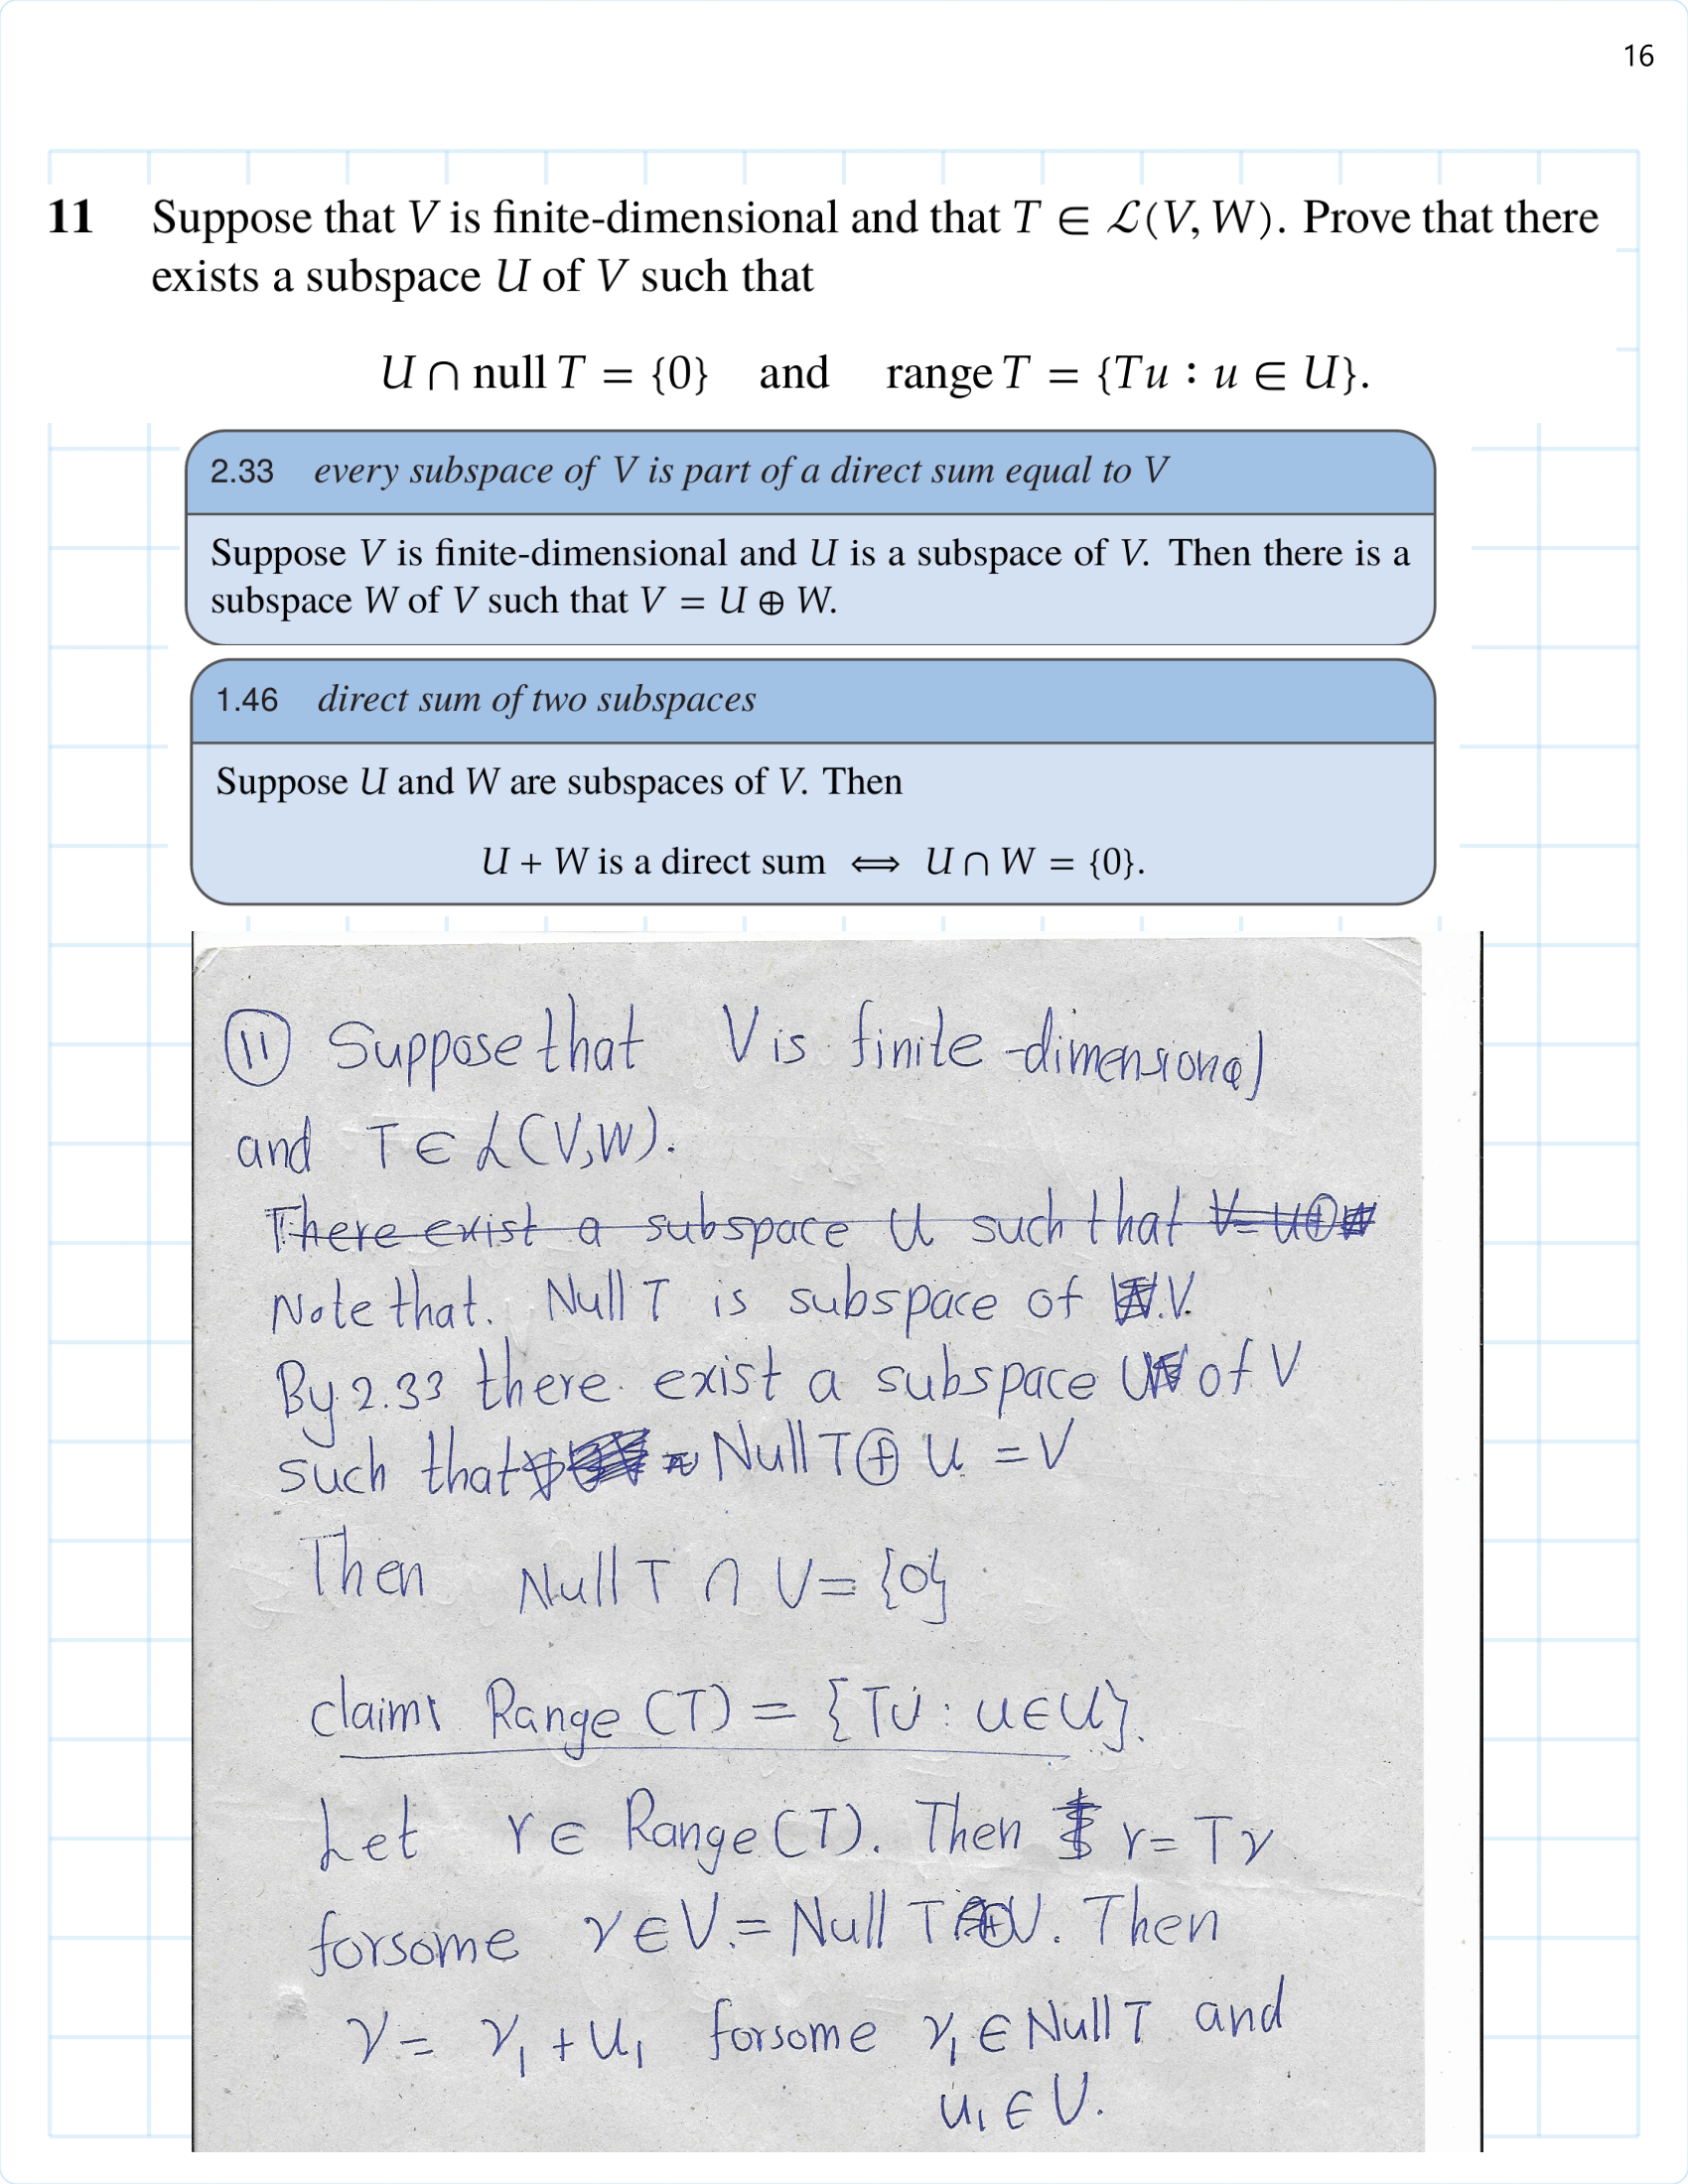 16
11 Suppose that V is finite-dimensional and that T ∈ ℒ(V, W). Prove that there
exists a subspace U of V such that
U ∩ null T = {0} and range T = {Tu : u ∈ U}.
2.33 every subspace of V is part of a direct sum equal to V
Suppose V is finite-dimensional and U is a subspace of V. Then there is a
subspace W of V such that V = U ⊕ W.
1.46 direct sum of two subspaces
Suppose U and W are subspaces of V. Then
U + W is a direct sum ⟺ U ∩ W = {0}.
⑪ Suppose that V is finite-dimensional
and T ∈ ℒ(V,W).
There exist a subspace U such that V = U⊕W
Note that. Null T is subspace of V.
By 2.33 there exist a subspace U of V
such that Null T ⊕ U = V
Then Null T ∩ U = {0}
claim: Range (T) = {Tu : u∈U}.
Let r ∈ Range (T). Then r = Tv
forsome v ∈ V = Null T ⊕ U. Then
v = v₁ + u₁ forsome v₁ ∈ Null T and
u₁ ∈ U.